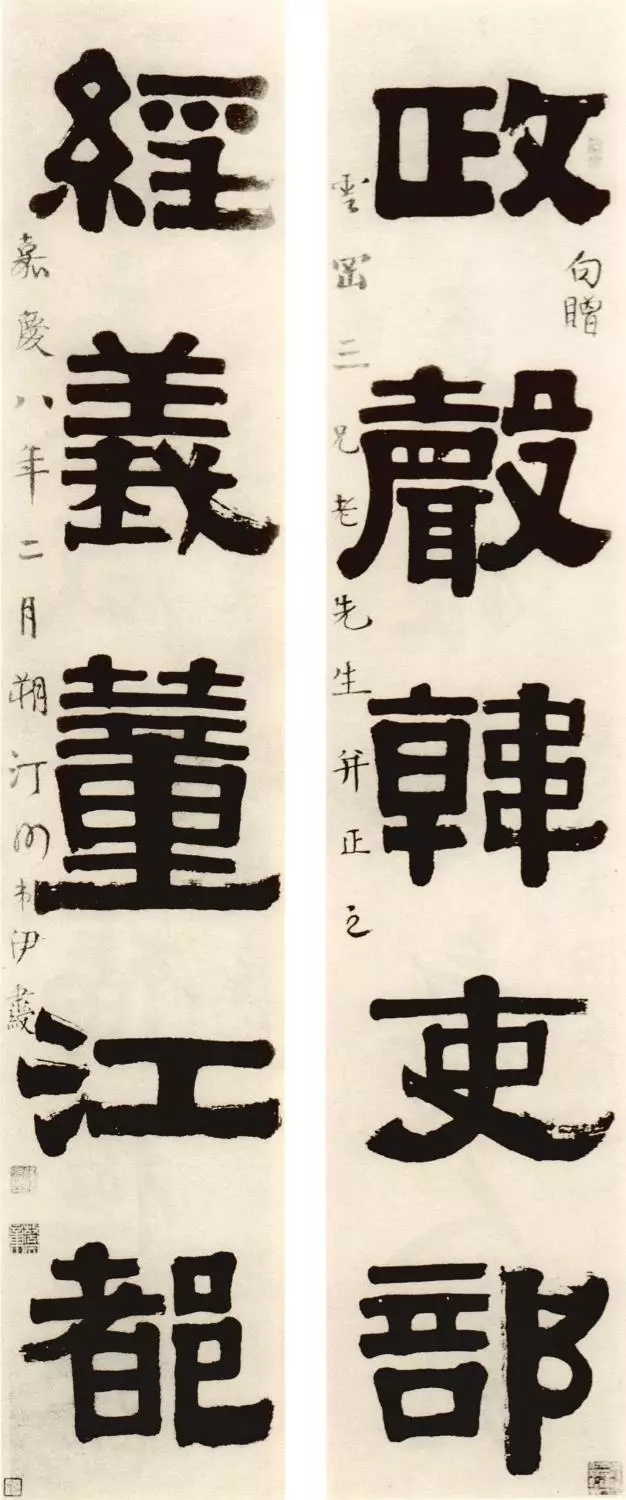 政聲韓吏部
句贈
雲崮三兄老先生并正之
經義董江都
嘉慶八年二月朔汀州弟伊秉綬